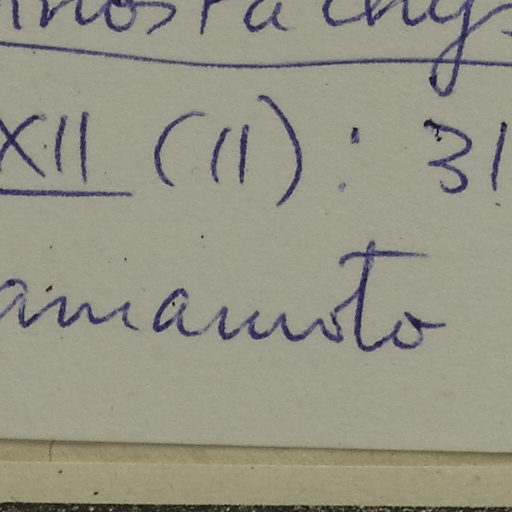 nostachys
XII (11): 31
amamoto